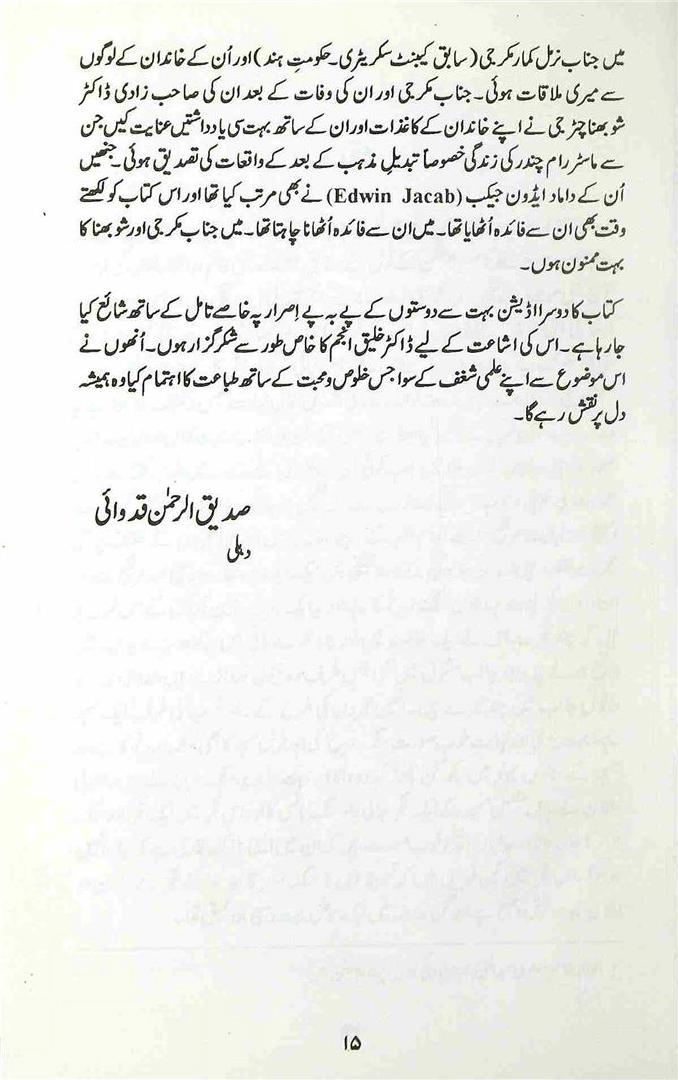 میں جناب نرمل کمار مکرجی (سابق کیبنٹ سکریٹری۔ حکومتِ ہند) اور اُن کے خاندان کے لوگوں
سے میری ملاقات ہوئی۔ جناب مکرجی اور ان کی وفات کے بعد ان کی صاحب زادی ڈاکٹر
شوبھنا چٹرجی نے اپنے خاندان کے کاغذات اور ان کے ساتھ بہت سی یادداشتیں عنایت کیں جن
سے ماسٹر رام چندر کی زندگی خصوصاً تبدیلِ مذہب کے بعد کے واقعات کی تصدیق ہوئی۔ جنھیں
اُن کے داماد ایڈون جیکب (Edwin Jacab) نے بھی مرتب کیا تھا اور اس کتاب کو لکھتے
وقت بھی ان سے فائدہ اُٹھایا تھا۔ میں ان سے فائدہ اُٹھانا چاہتا تھا۔ میں جناب مکرجی اور شوبھنا کا
بہت ممنون ہوں۔
کتاب کا دوسرا اڈیشن بہت سے دوستوں کے پے بہ پے اِصرار پہ خاصے تامل کے ساتھ شائع کیا
جارہا ہے۔ اس کی اشاعت کے لیے ڈاکٹر خلیق انجم کا خاص طور سے شکر گزار ہوں۔ اُنھوں نے
اس موضوع سے اپنے علمی شغف کے سوا جس خلوص و محبت کے ساتھ طباعت کا اہتمام کیا وہ ہمیشہ
دل پر نقش رہے گا۔
صدیق الرحمٰن قدوائی
دہلی
۱۵